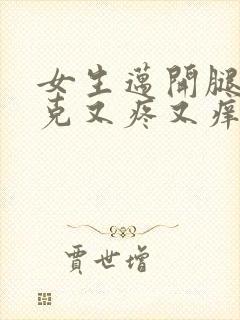 女生邁開腿
克又疼又痒
賈世增